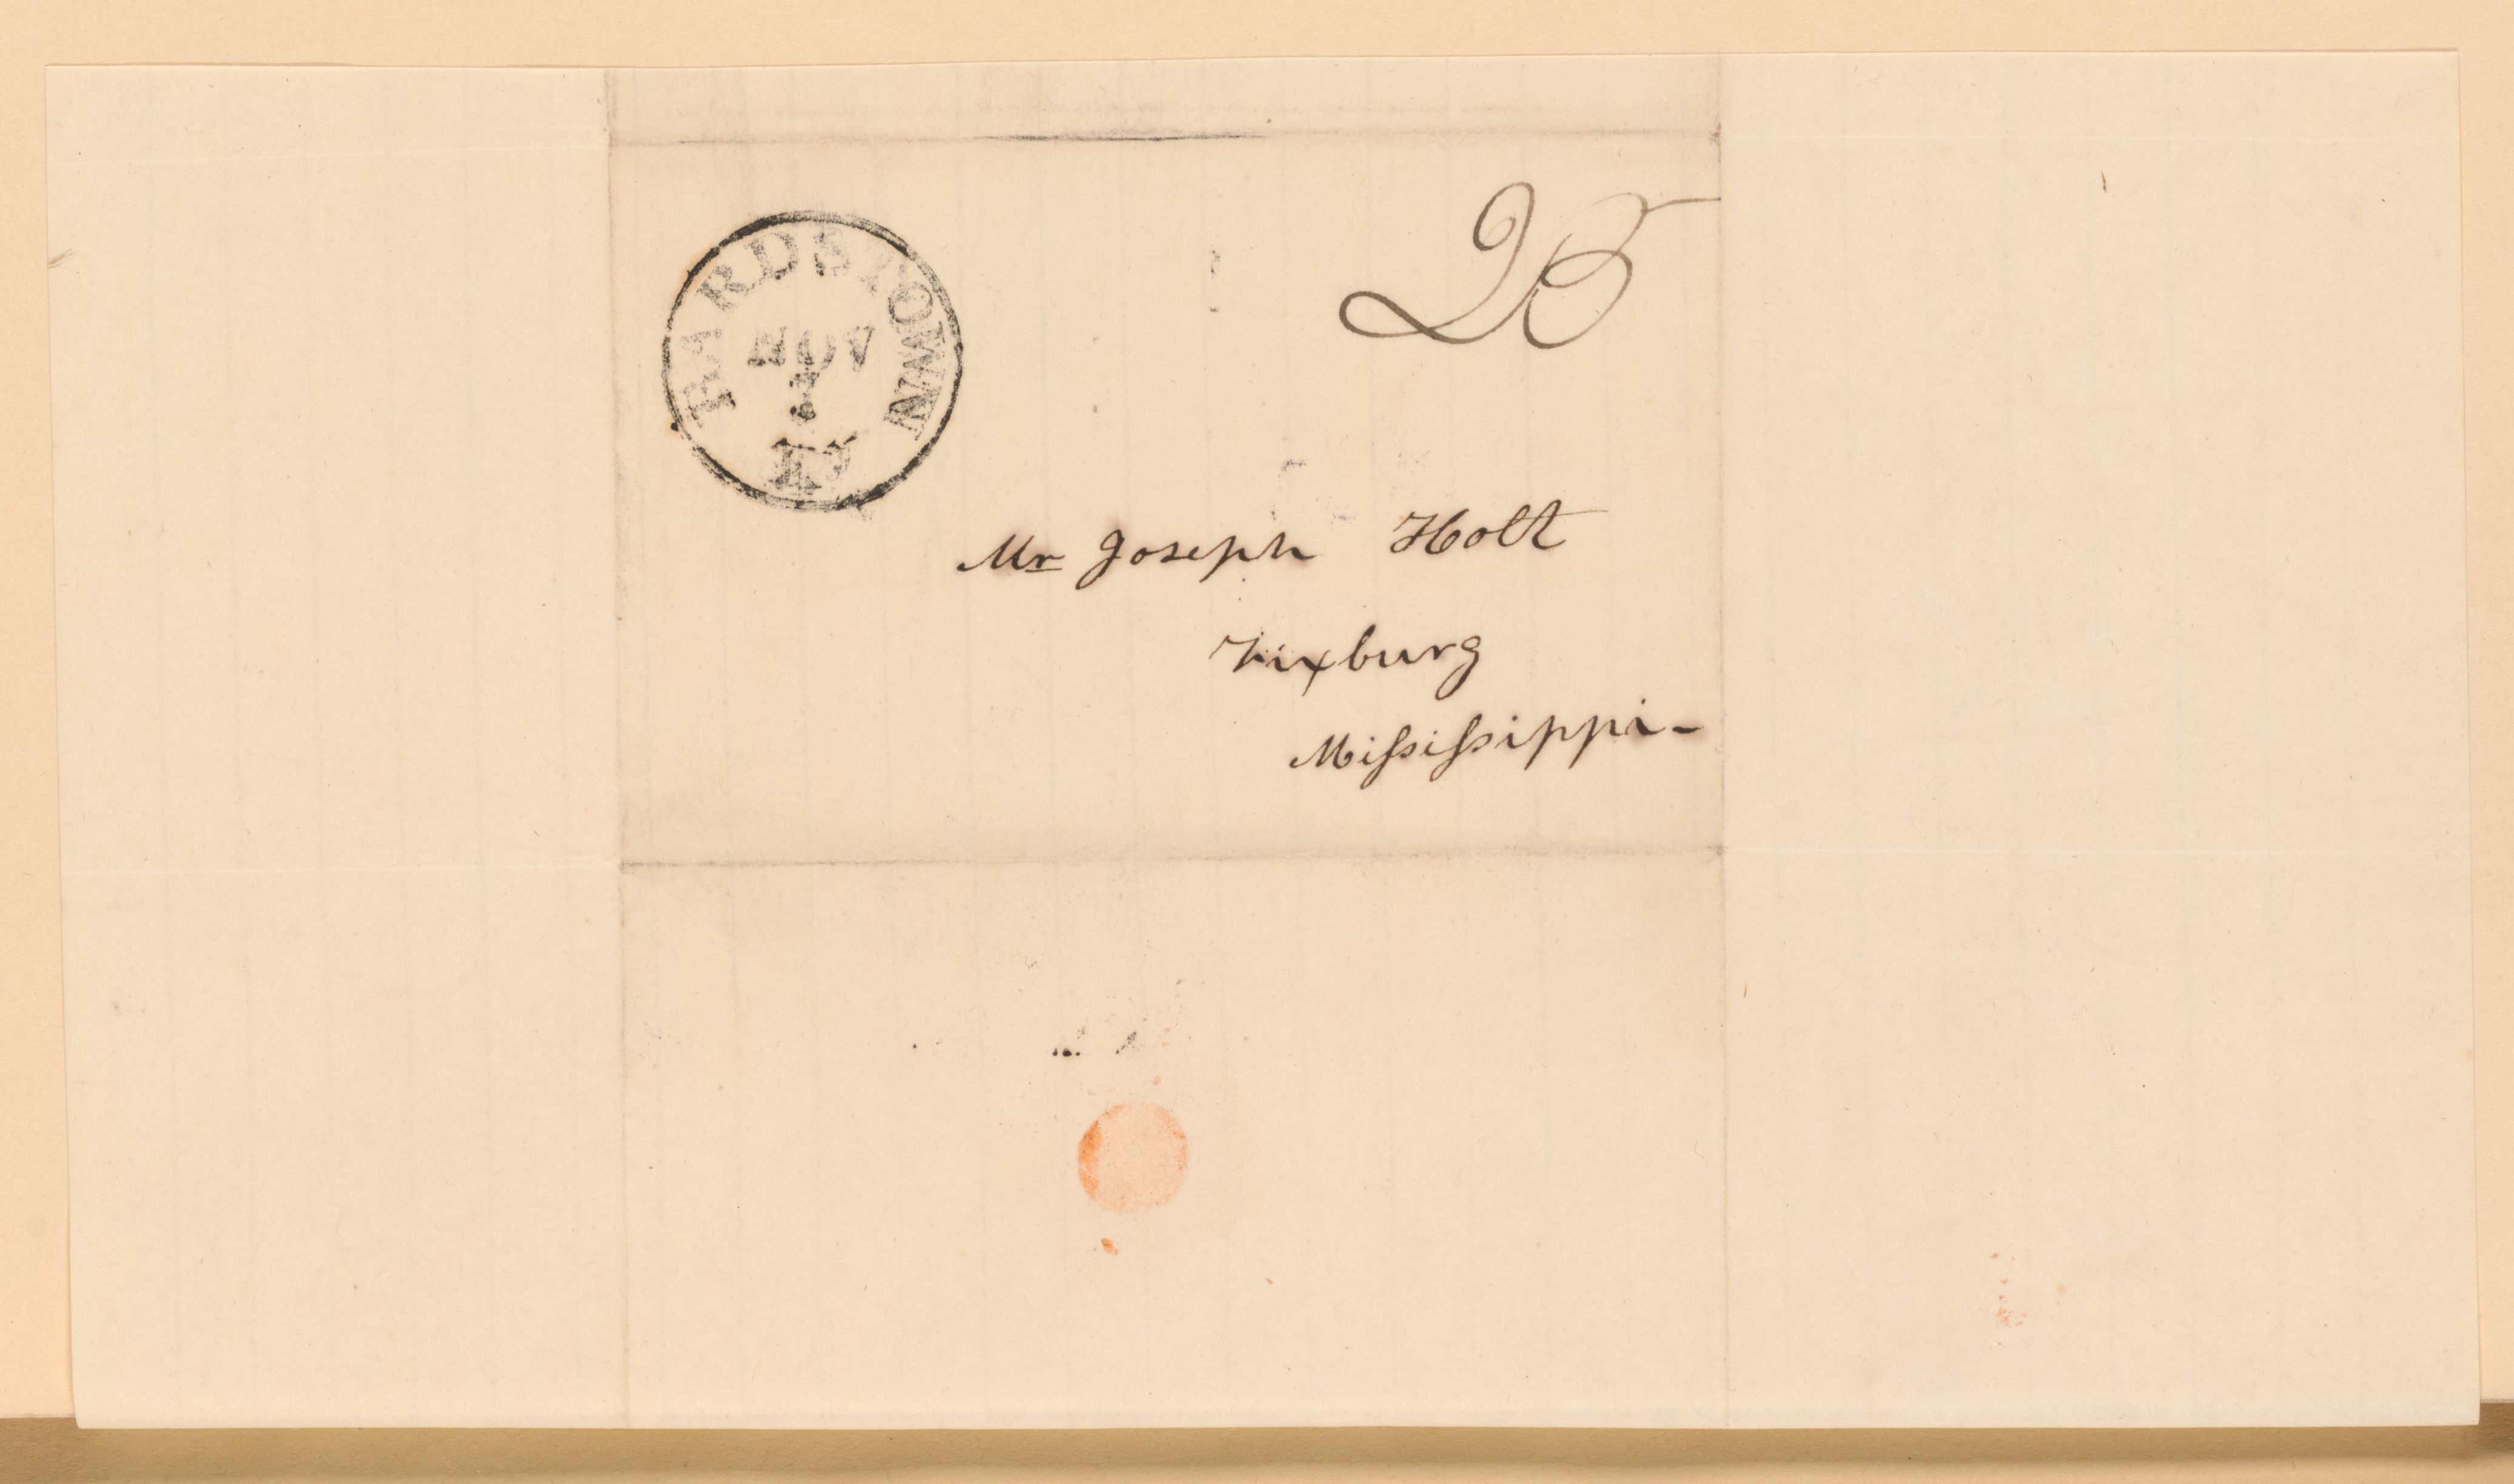 BARDSTOWN
NOV
KY
25
Mr Joseph Holt
Vixburg
Miſsiſsippi-